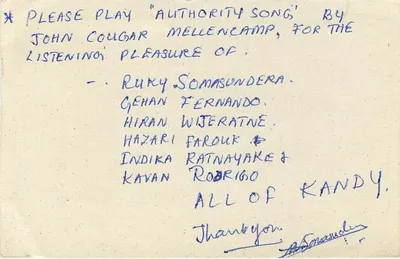 * PLEASE PLAY "AUTHORITY SONG" BY
JOHN COUGAR MELLENCAMP, FOR THE
LISTENING PLEASURE OF.
-. RUKY SOMASUNDERA.
GEHAN FERNANDO.
HIRAN WIJERATNE.
HAZARI FAROUK &
INDIKA RATNAYAKE &
KAVAN RODRIGO
ALL OF KANDY.
Thankyou.